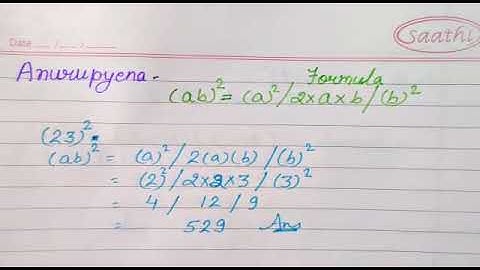 saathi
Date ___/___/___
Anurupyena -
Formula
(ab)² = (a)² / 2×a×b / (b)²
(23)²
(ab)² = (a)² / 2(a)(b) / (b)²
= (2)² / 2×2×3 / (3)²
= 4 / 12 / 9
= 529 Ans